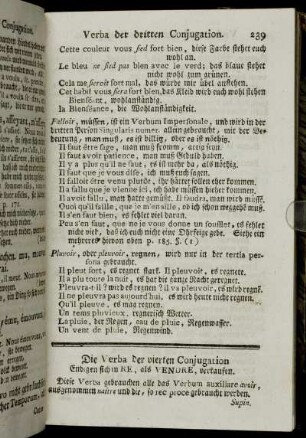 Verba der dritten Conjugation. 239
Cette couleur vous sied fort bien, diese Farbe stehet euch
wohl an.
Le bleu ne sied pas bien avec le verd; das blaue stehet
nicht wohl zum grünen.
Cela me seroit fort mal, das würde mir übel anstehen.
Cet habit vous sera fort bien, das Kleid wird euch wohl stehen
Bienséant, wohlanständig.
la Bienséance, die Wohlanständigkeit.
Falloir, müssen, ist ein Verbum Impersonale, und wird in der
dritten Person singularis numeri allein gebraucht, mit der Be-
deutung, man muß, es ist billig, oder es ist nöthig.
Il faut être sage, man muß fromm, artig seyn.
Il faut avoir patience, man muß Geduld haben.
Il y a plus qu'il ne faut, es ist mehr da, als nöthig.
Il faut que je vous dise, ich muß euch sagen.
Il falloit être venu plutôt, ihr hättet sollen eher kommen.
Il a fallu que je vienne ici, ich habe müssen hieher kommen.
Il avoit fallu, man hatte gemußt. Il faudra, man wird müssen.
Quoi qu'il faille, que je m'en aille, ob ich schon weggehen muß.
Il s'en faut bien, es fehlet viel daran.
Peu s'en faut, que je ne vous donne un soufflet, es fehlet
nicht viel, daß ich euch nicht eine Ohrfeige gebe. Siehe ein
mehreres hievon oben p. 185. §. (1)
Pleuvoir, oder pleuvoir, regnen, wird nur in der tertia per-
sona gebraucht.
Il pleut fort, es regnet stark. Il pleuvoit, es regnete.
Il a plu toute la nuit, es hat die ganze Nacht geregnet.
Pleuvra-t-il? wird es regnen? il va pleuvoir, es wird regnen.
Il ne pleuvra pas aujourd'hui, es wird heute nicht regnen.
Qu'il pleuve, es mag regnen.
Un tems pluvieux, regnerisch Wetter.
La pluie, der Regen, eau de pluie, Regenwasser.
Un vent de pluie, Regenwind.
Die Verba der vierten Conjugation
Endigen sich in RE, als VENDRE, verkaufen.
Diese Verba gebrauchen alle das Verbum auxiliare avoir,
ausgenommen naître und die, so reciproce gebraucht werden.
Supin.